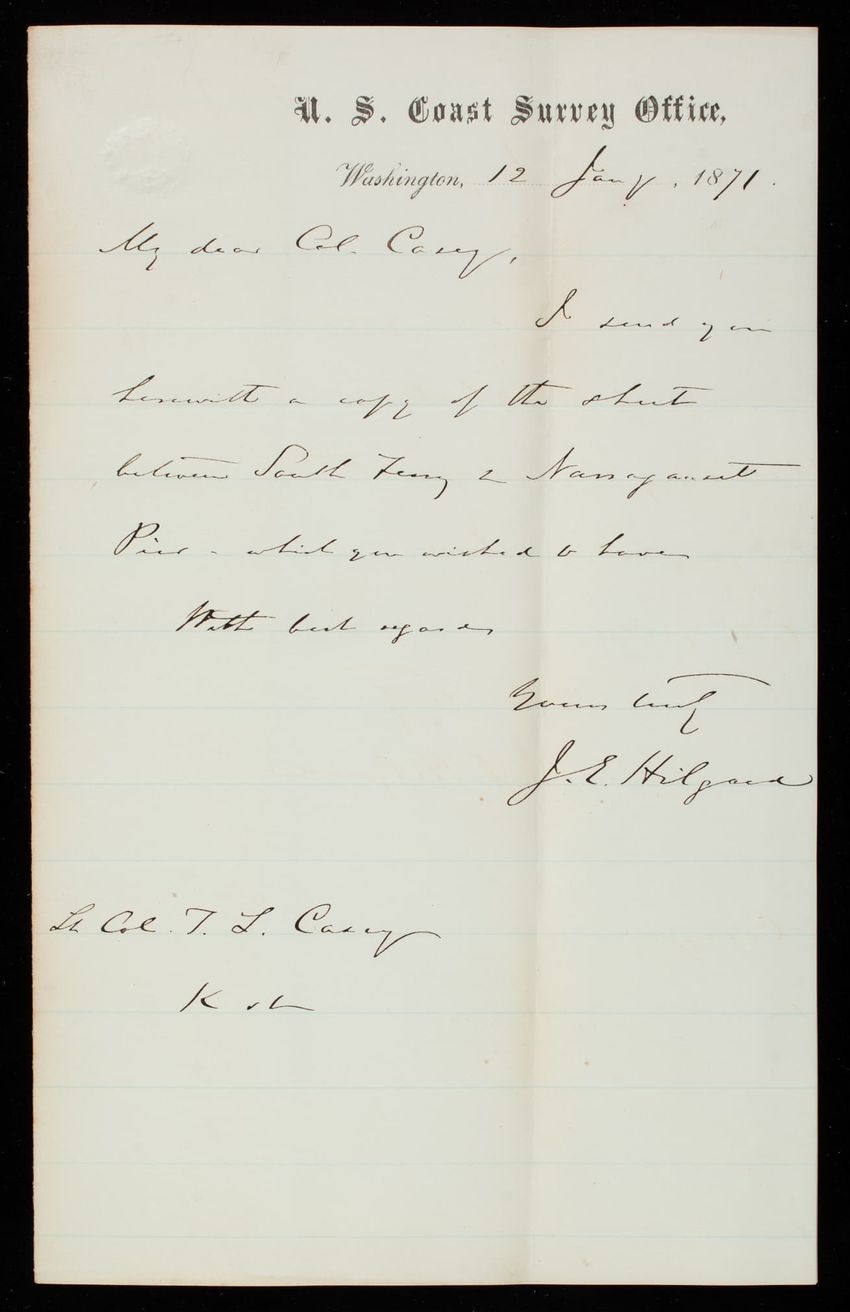 U. S. Coast Survey Office,
Washington, 12 Jany, 1871.
My dear Col. Casey,
I send you
herewith a copy of the sheet
between South Ferry & Narragansett
Pier - which you wished to have
With best regards
Yours truly
J. E. Hilgard
Lt Col. T. L. Casey
K st